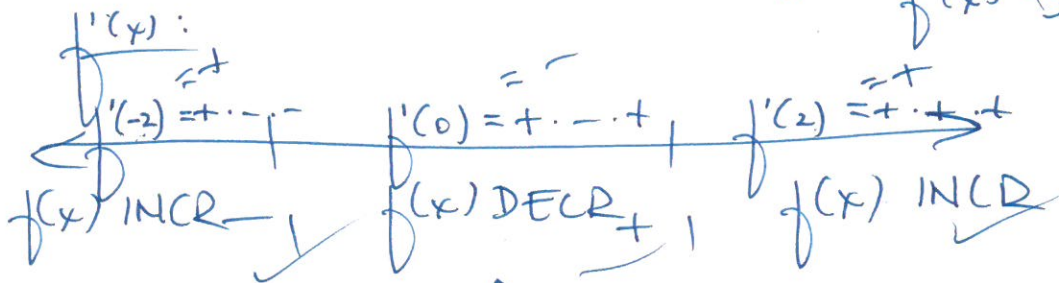 f(x)
f'(x) :
= + = - = +
f'(-2) = + · - · - f'(0) = + · - · + f'(2) = + · + · +
f(x) INCR -1 f(x) DECR +1 f(x) INCR